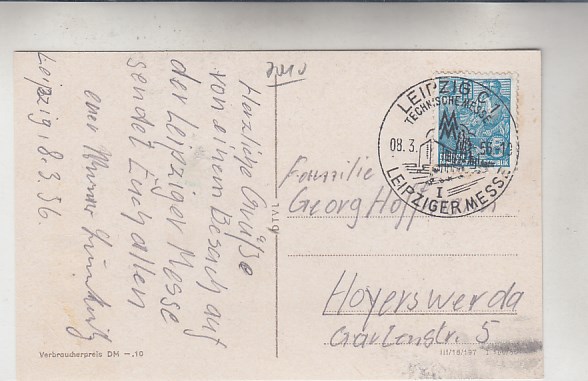 Herzliche Grüße
von einem Besuch auf
der Leipziger Messe
sendet Euch allen
euer
Leipzig, 8.3.56.
Familie
Georg
Hoyerswerda
Gartenstr. 5
LEIPZIG C 1
TECHNISCHE MESSE
MM
08.3.
LEIPZIGER MESSE
Verbraucherpreis DM —,10
III/18/197